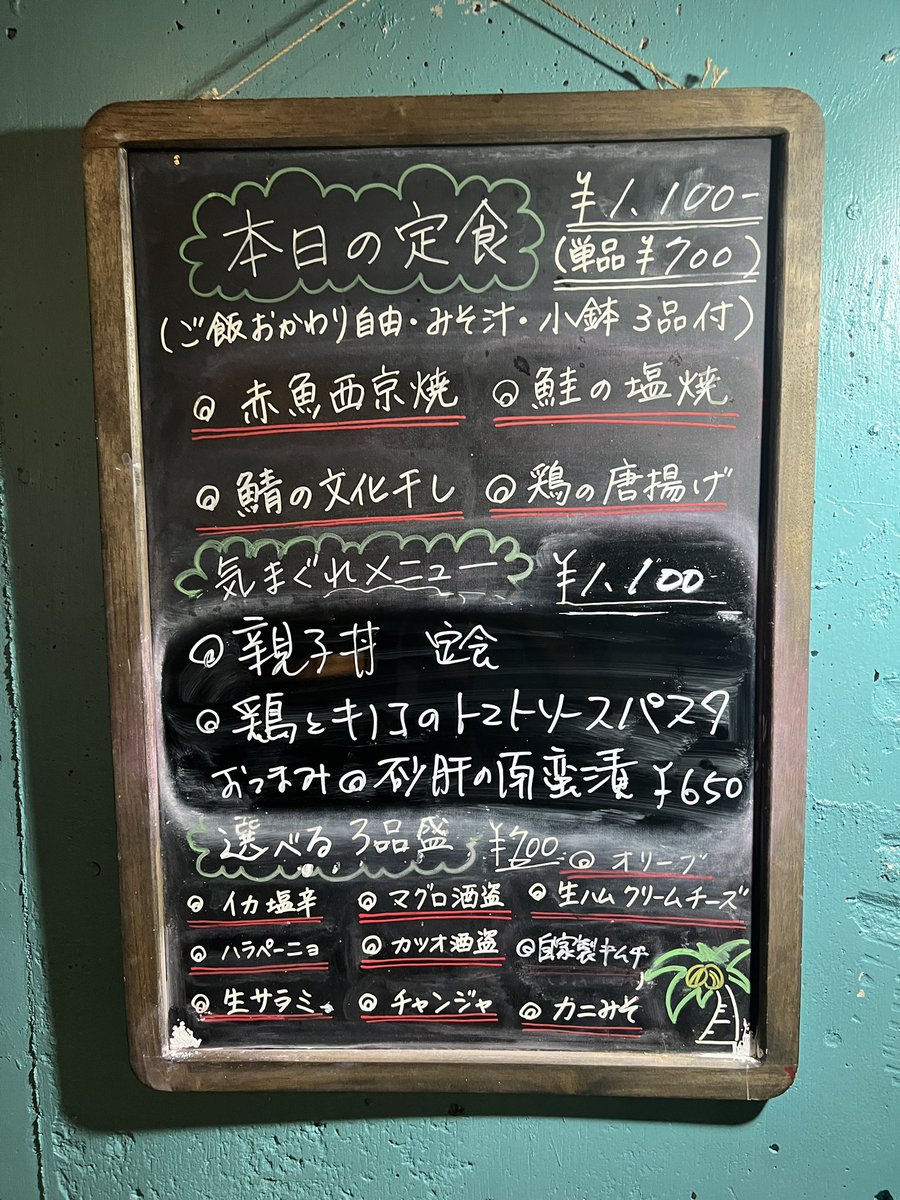 本日の定食 ¥1,100-
(単品 ¥700)
(ご飯おかわり自由・みそ汁・小鉢 3品付)
◎ 赤魚西京焼 ◎ 鮭の塩焼
◎ 鯖の文化干し ◎ 鶏の唐揚げ
気まぐれメニュー ¥1,100
◎ 親子丼 定食
◎ 鶏とキノコのトマトソースパスタ
おつまみ◎砂肝の南蛮漬 ¥650
選べる 3品盛 ¥700
◎ オリーブ
◎ イカ塩辛 ◎ マグロ酒盗 ◎ 生ハムクリームチーズ
◎ ハラペーニョ ◎ カツオ酒盗 ◎自家製キムチ
◎ 生サラミ ◎ チャンジャ ◎ カニみそ